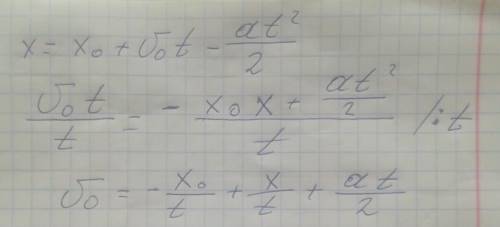 x = x₀ + υ₀t - at²/2
υ₀t/t = - (x₀x + at²/2)/t /:t
υ₀ = - x₀/t + x/t + at/2